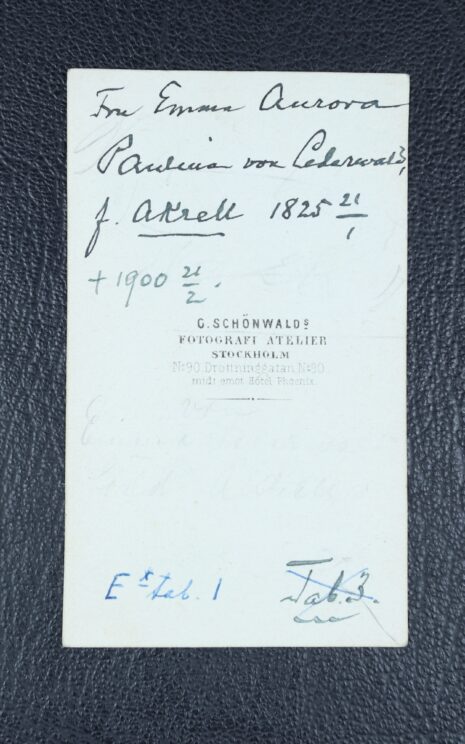 Fru Emma Aurora
Paulina von Cederwald,
f. Akrell 1825 21/1
+ 1900 21/2.
G. SCHÖNWALDS
FOTOGRAFI ATELIER
STOCKHOLM
No 90 Drottninggatan No 90.
midt emot Hôtel Phoenix.
Ex tab. 1
Tab. 3.